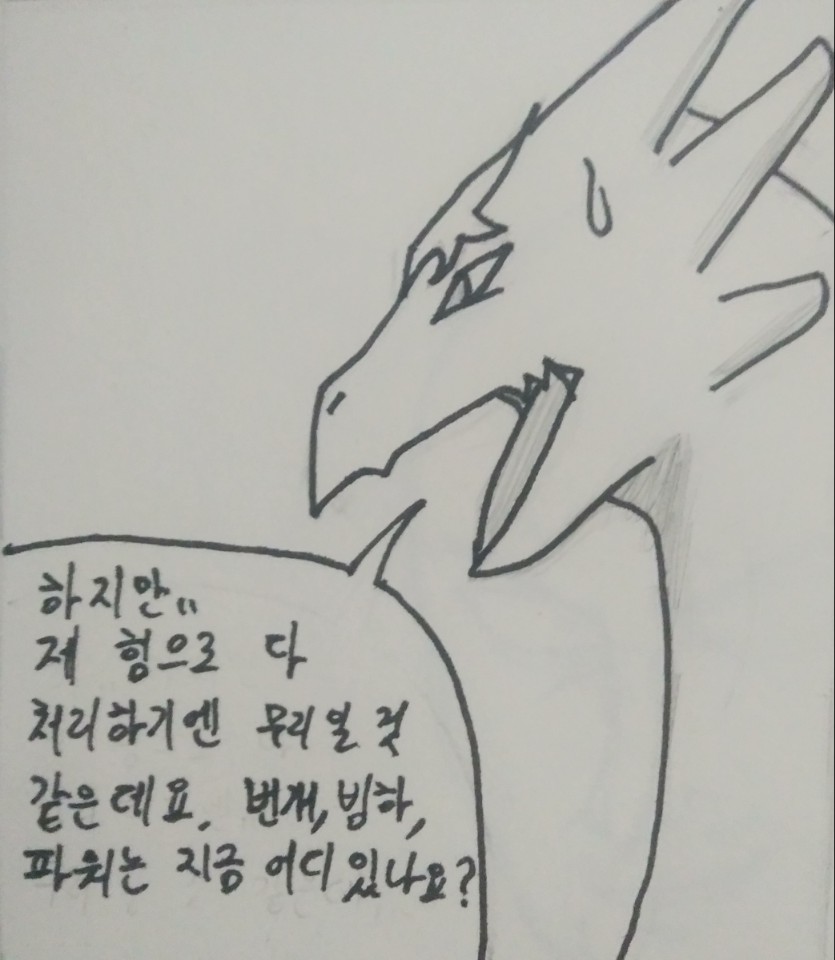 하지만..
제 힘으로 다
처리하기엔 무리일 것
같은데요. 번개, 빙하,
파워는 지금 어디 있나요?